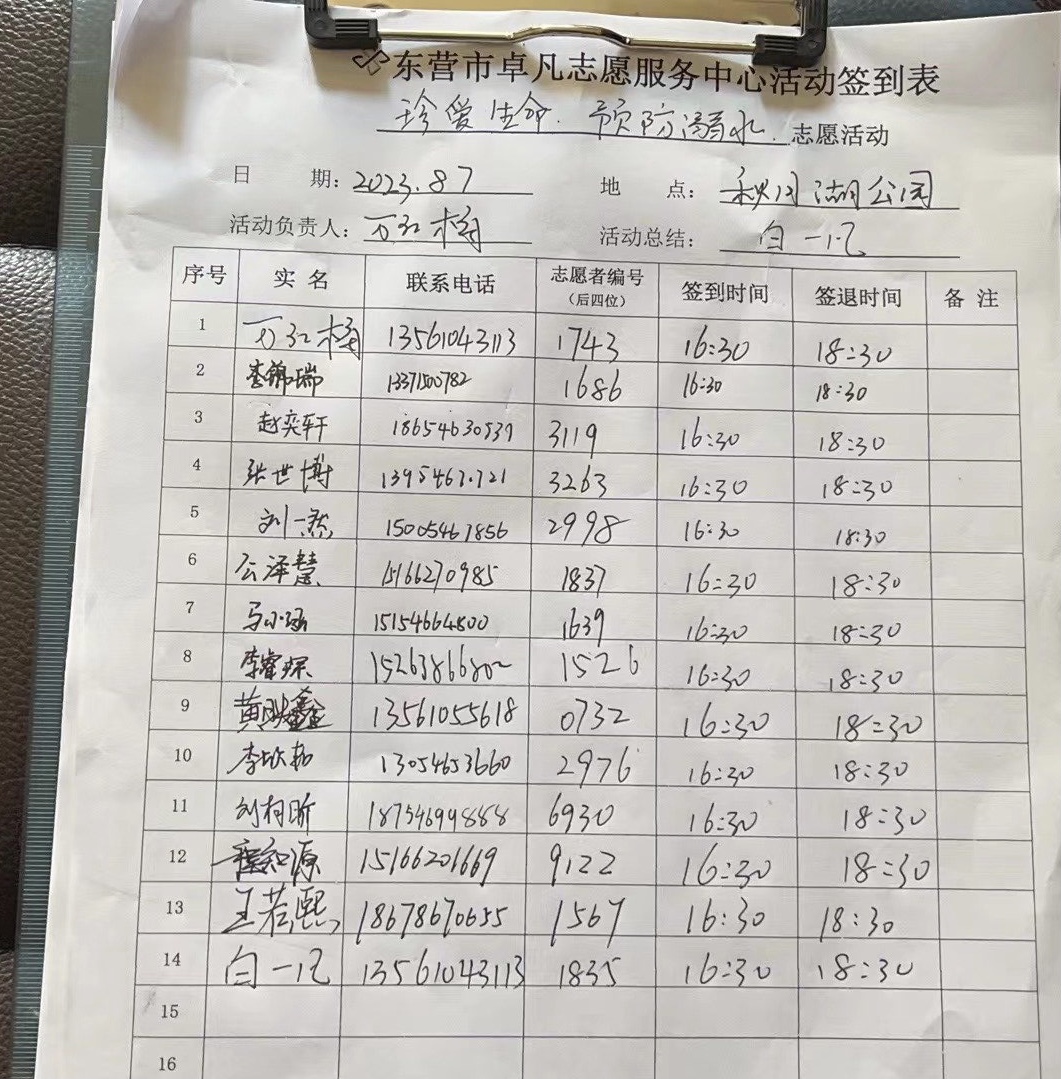 东营市卓凡志愿服务中心活动签到表
珍爱生命.预防溺水.志愿活动
日 期：2023.8.7 地 点：秋月湖公园
活动负责人：万红梅 活动总结：白一凡
序号 实名 联系电话 志愿者编号（后四位） 签到时间 签退时间 备注
1 万红梅 13561043113 1743 16:30 18:30
2 李锦瑞 13371500782 1686 16:30 18:30
3 赵奕轩 18654630539 3119 16:30 18:30
4 张世博 3263 16:30 18:30
5 刘一燕 15005461856 2998 16:30 18:30
6 公泽慧 15166270985 1837 16:30 18:30
7 马小涵 15154664800 1639 16:30 18:30
8 李睿琛 15263866802 1526 16:30 18:30
9 13561055618 0732 16:30 18:30
10 李欣韵 13054653660 2976 16:30 18:30
11 刘柯昕 18754699888 6930 16:30 18:30
12 程知源 15166201669 9122 16:30 18:30
13 王若熙 18678670655 1567 16:30 18:30
14 白一凡 13561043113 1835 16:30 18:30
15
16